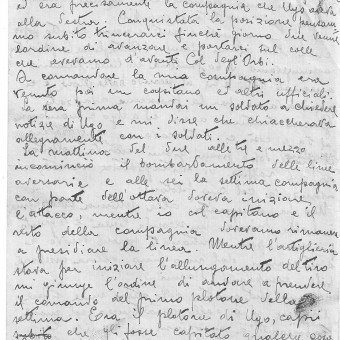 ed era precisamente la compagnia che Ugo aveva
alla destra. Conquistata la posizione
subito trincerarci finché giorno due venne
l'ordine di avanzare e portarsi sul colle
che avevamo d'avanti Col degli Orsi.
A comandare la mia compagnia era
venuto poi un capitano ed altri ufficiali.
La sera prima mandai un soldato a chiedere
notizie di Ugo e mi disse che chiaccherava
allegramente con i soldati.
La mattina del due alle tre e mezzo
incominciò il bombardamento delle linee
avversarie e alle sei la settima compagnia
con parte dell'ottava doveva iniziare
l'attacco, mentre io col capitano e il
resto della compagnia dovevamo rimanere
a presidiare la linea. Mentre l'artiglieria
stava per iniziare l'allungamento del tiro
mi giunge l'ordine di andare a prendere
il comando del primo plotone della
settima. Era il plotone di Ugo, capii
subito che gli fosse capitato qualche cosa